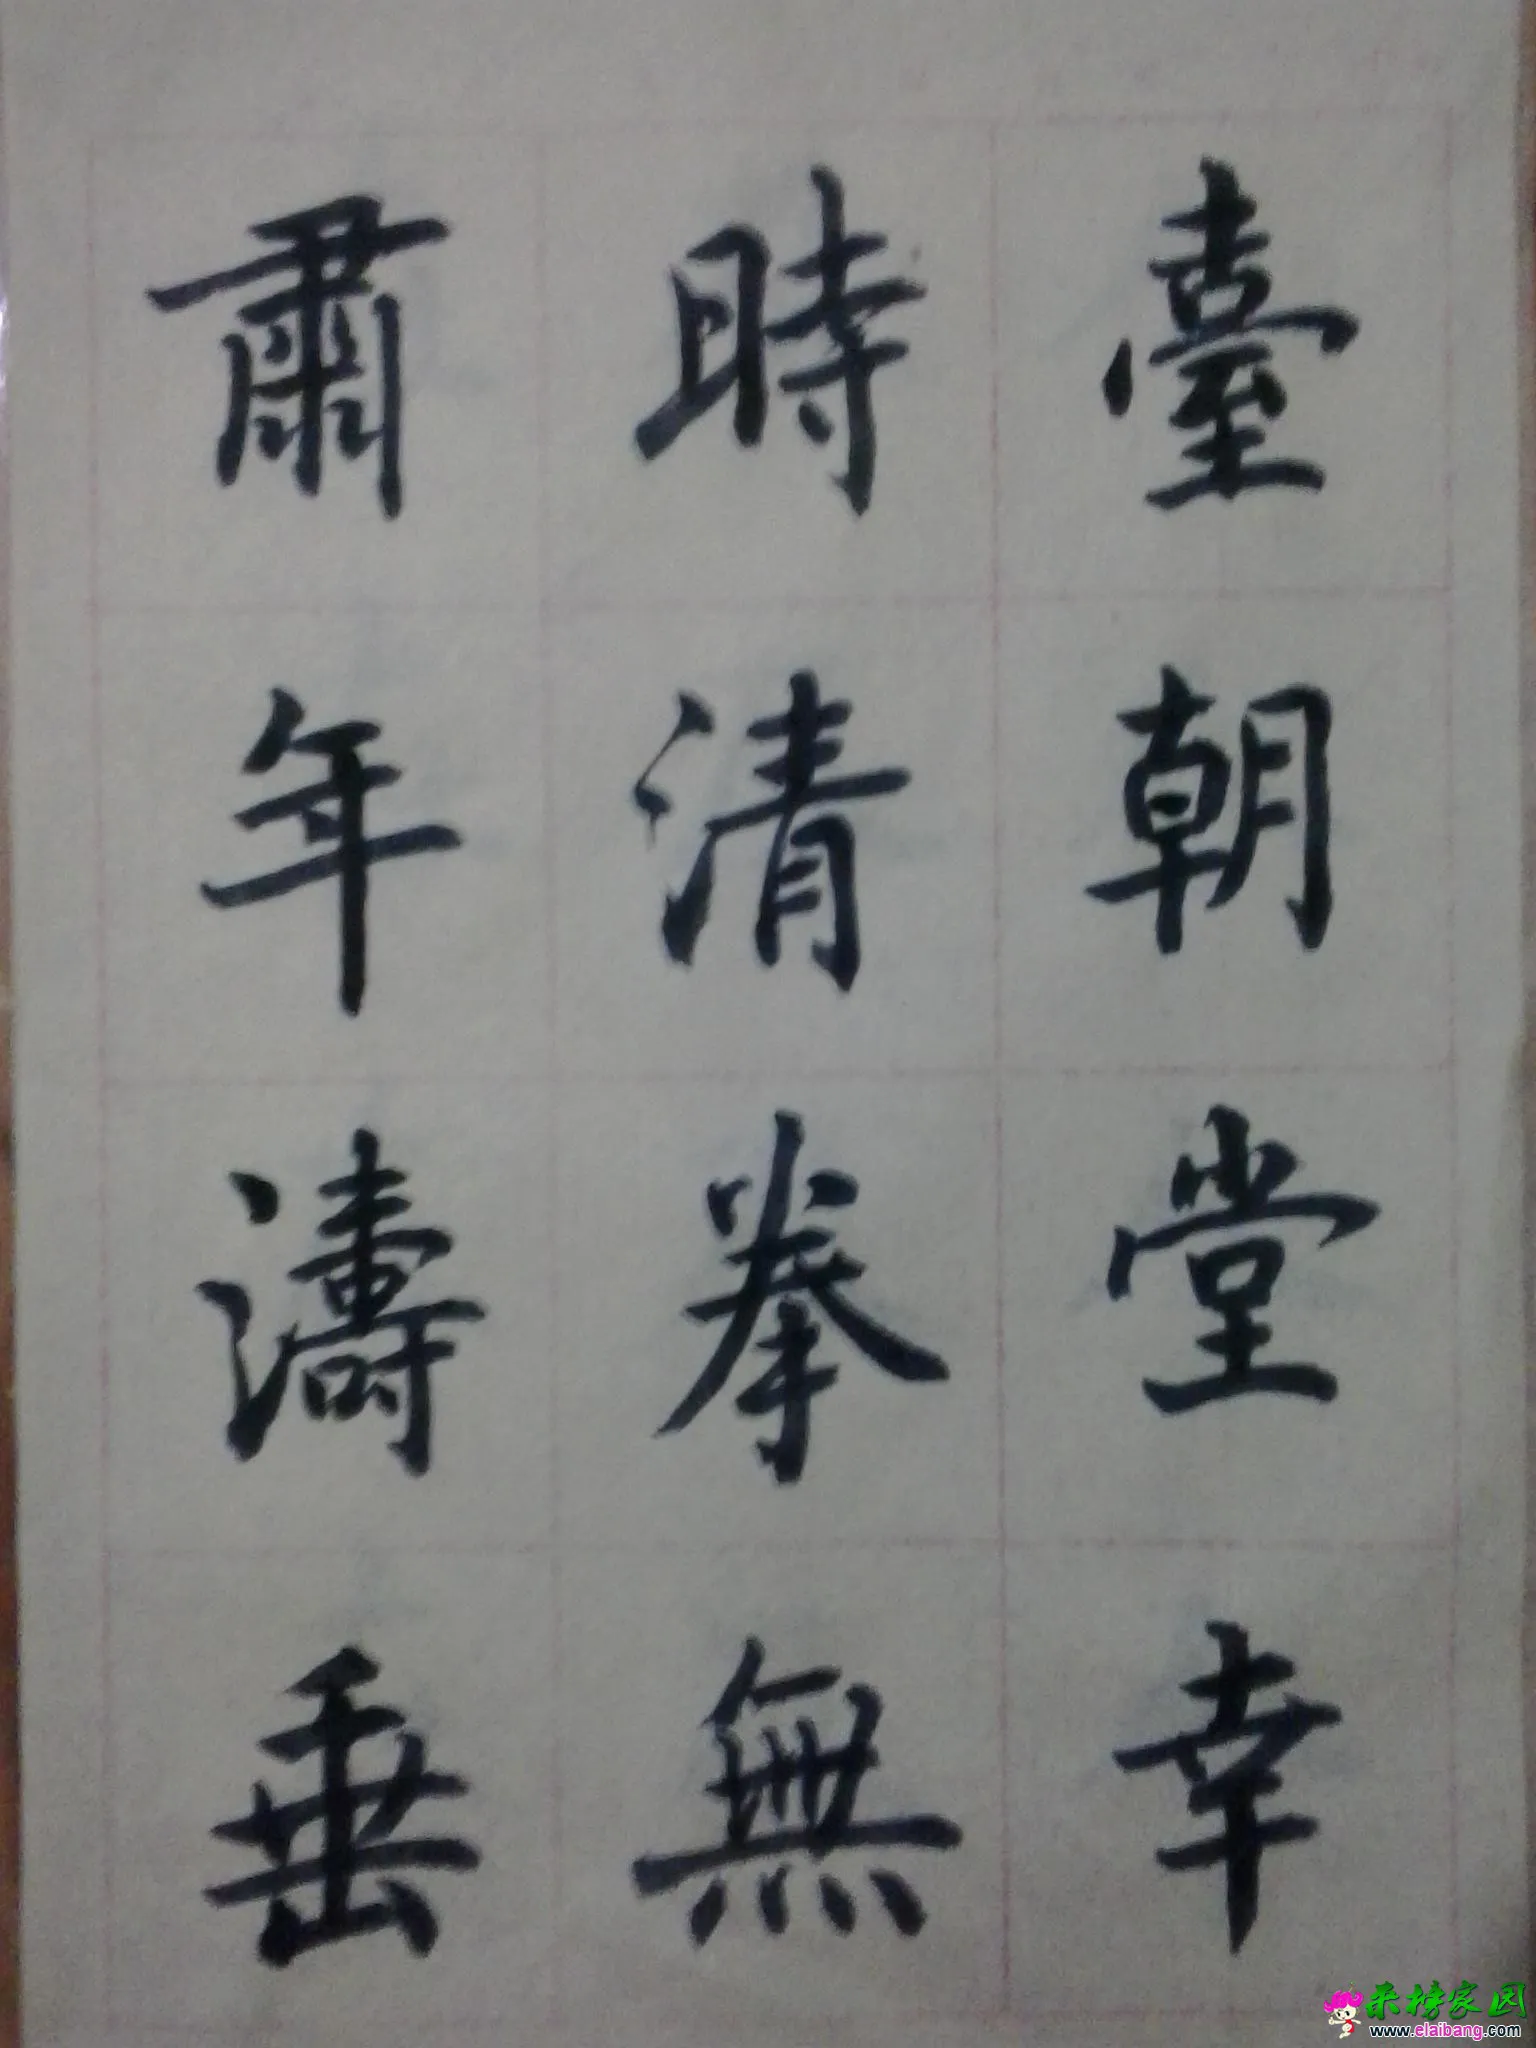 臺朝堂幸
時清拳無
肅年濤垂
来榜家园
www.elaibang.com